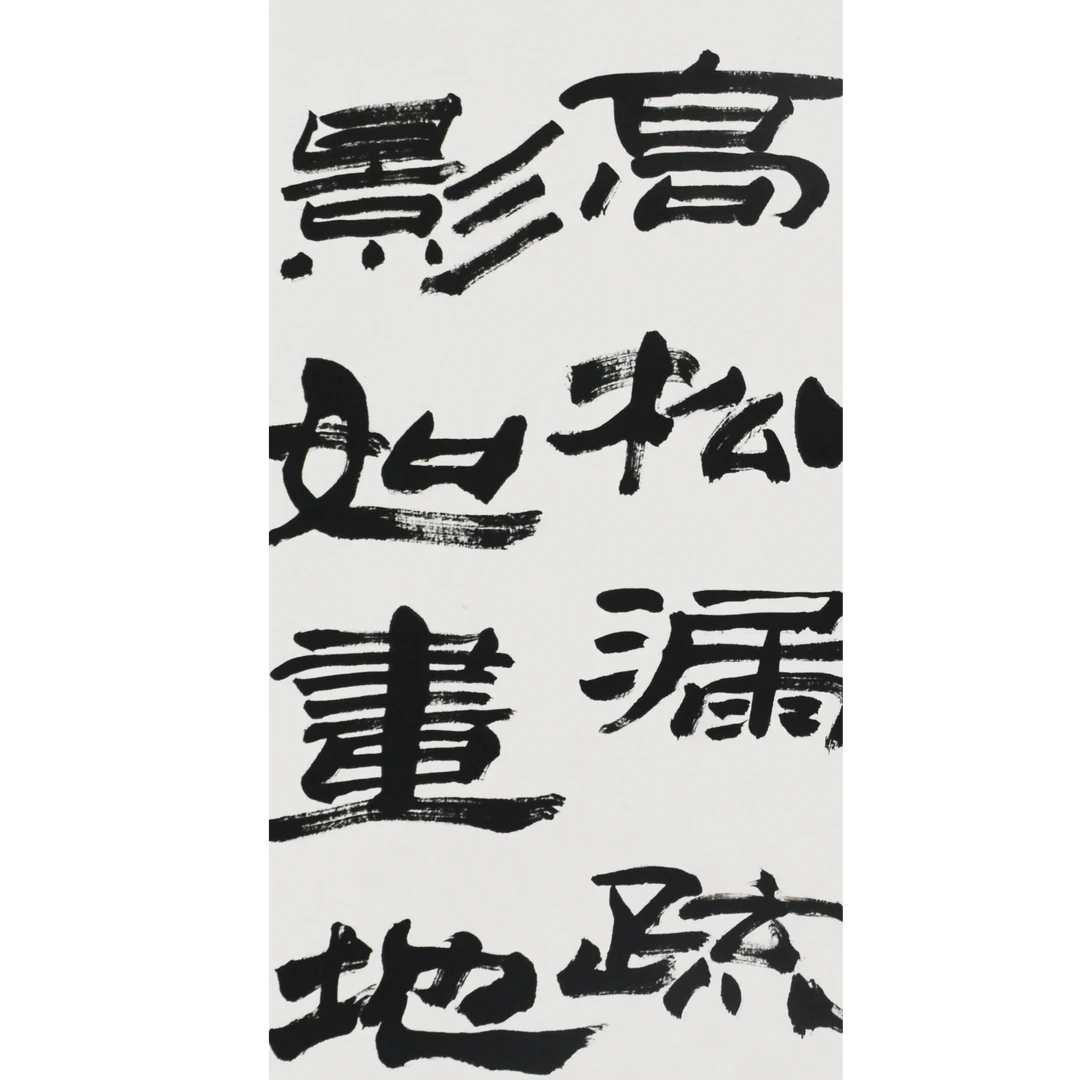 高松漏疏
影如畫地